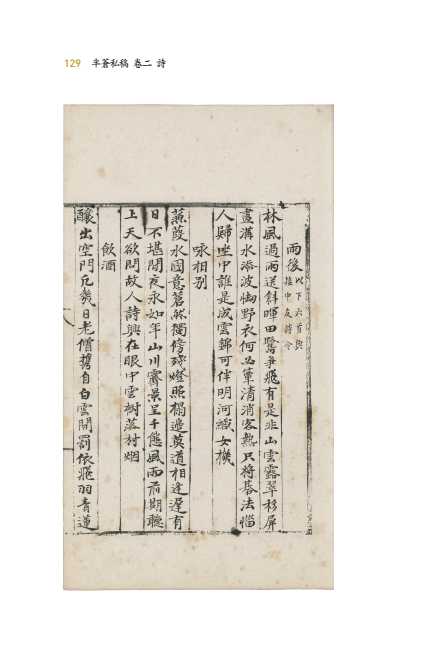 129 半蒼私稿 卷二 詩
雨後 以下六首與
林風過雨送斜暉田鷺爭飛有是非山雲露翠移屛
畫溝水添波拗野衣何必簟清消客熱只將碁法惱
人歸坐中誰是成雲錦可伴明河織女機
咏相別
蒹葭水國意蒼然獨傍殘燈照榻邊莫道相逢遲有
日不堪閒夜永如年山川霽景呈千態風雨前期聽
上天欲問故人詩興在眼中雲樹落村烟
飮酒
釀出空門凡幾日老僧携自白雲關罰依飛羽靑蓮